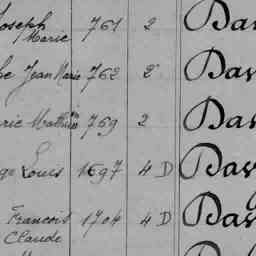 Joseph Marie 761 2 Dav
Jean Marie 762 2 Dav
Mathieu 769 2 Dav
Louis 1697 4 D Dav
François Claude 1704 4 D Dav